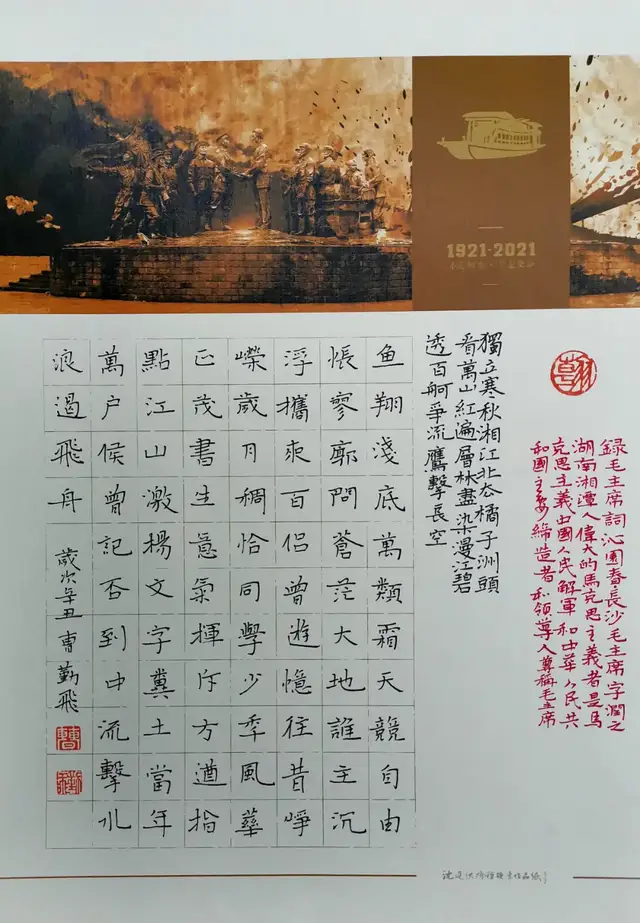 1921-2021
錄毛主席詞沁園春長沙毛主席字潤之
湖南湘潭人偉大的馬克思主義者是馬
克思主義中國人民解軍和中華人民共
和國主要締造者和領導人尊稱毛主席
獨立寒秋湘江北去橘子洲頭
看萬山紅遍層林盡染漫江碧
透百舸爭流鷹擊長空
鱼翔淺底萬類霜天競自由
悵寥廓問蒼茫大地誰主沉
浮攜來百侶曾遊憶往昔崢
嶸歲月稠恰同學少年風華
正茂書生意氣揮斥方遒指
點江山激揚文字糞土當年
萬户侯曾記否到中流擊水
浪遏飛舟 歲次辛丑曹勤飛